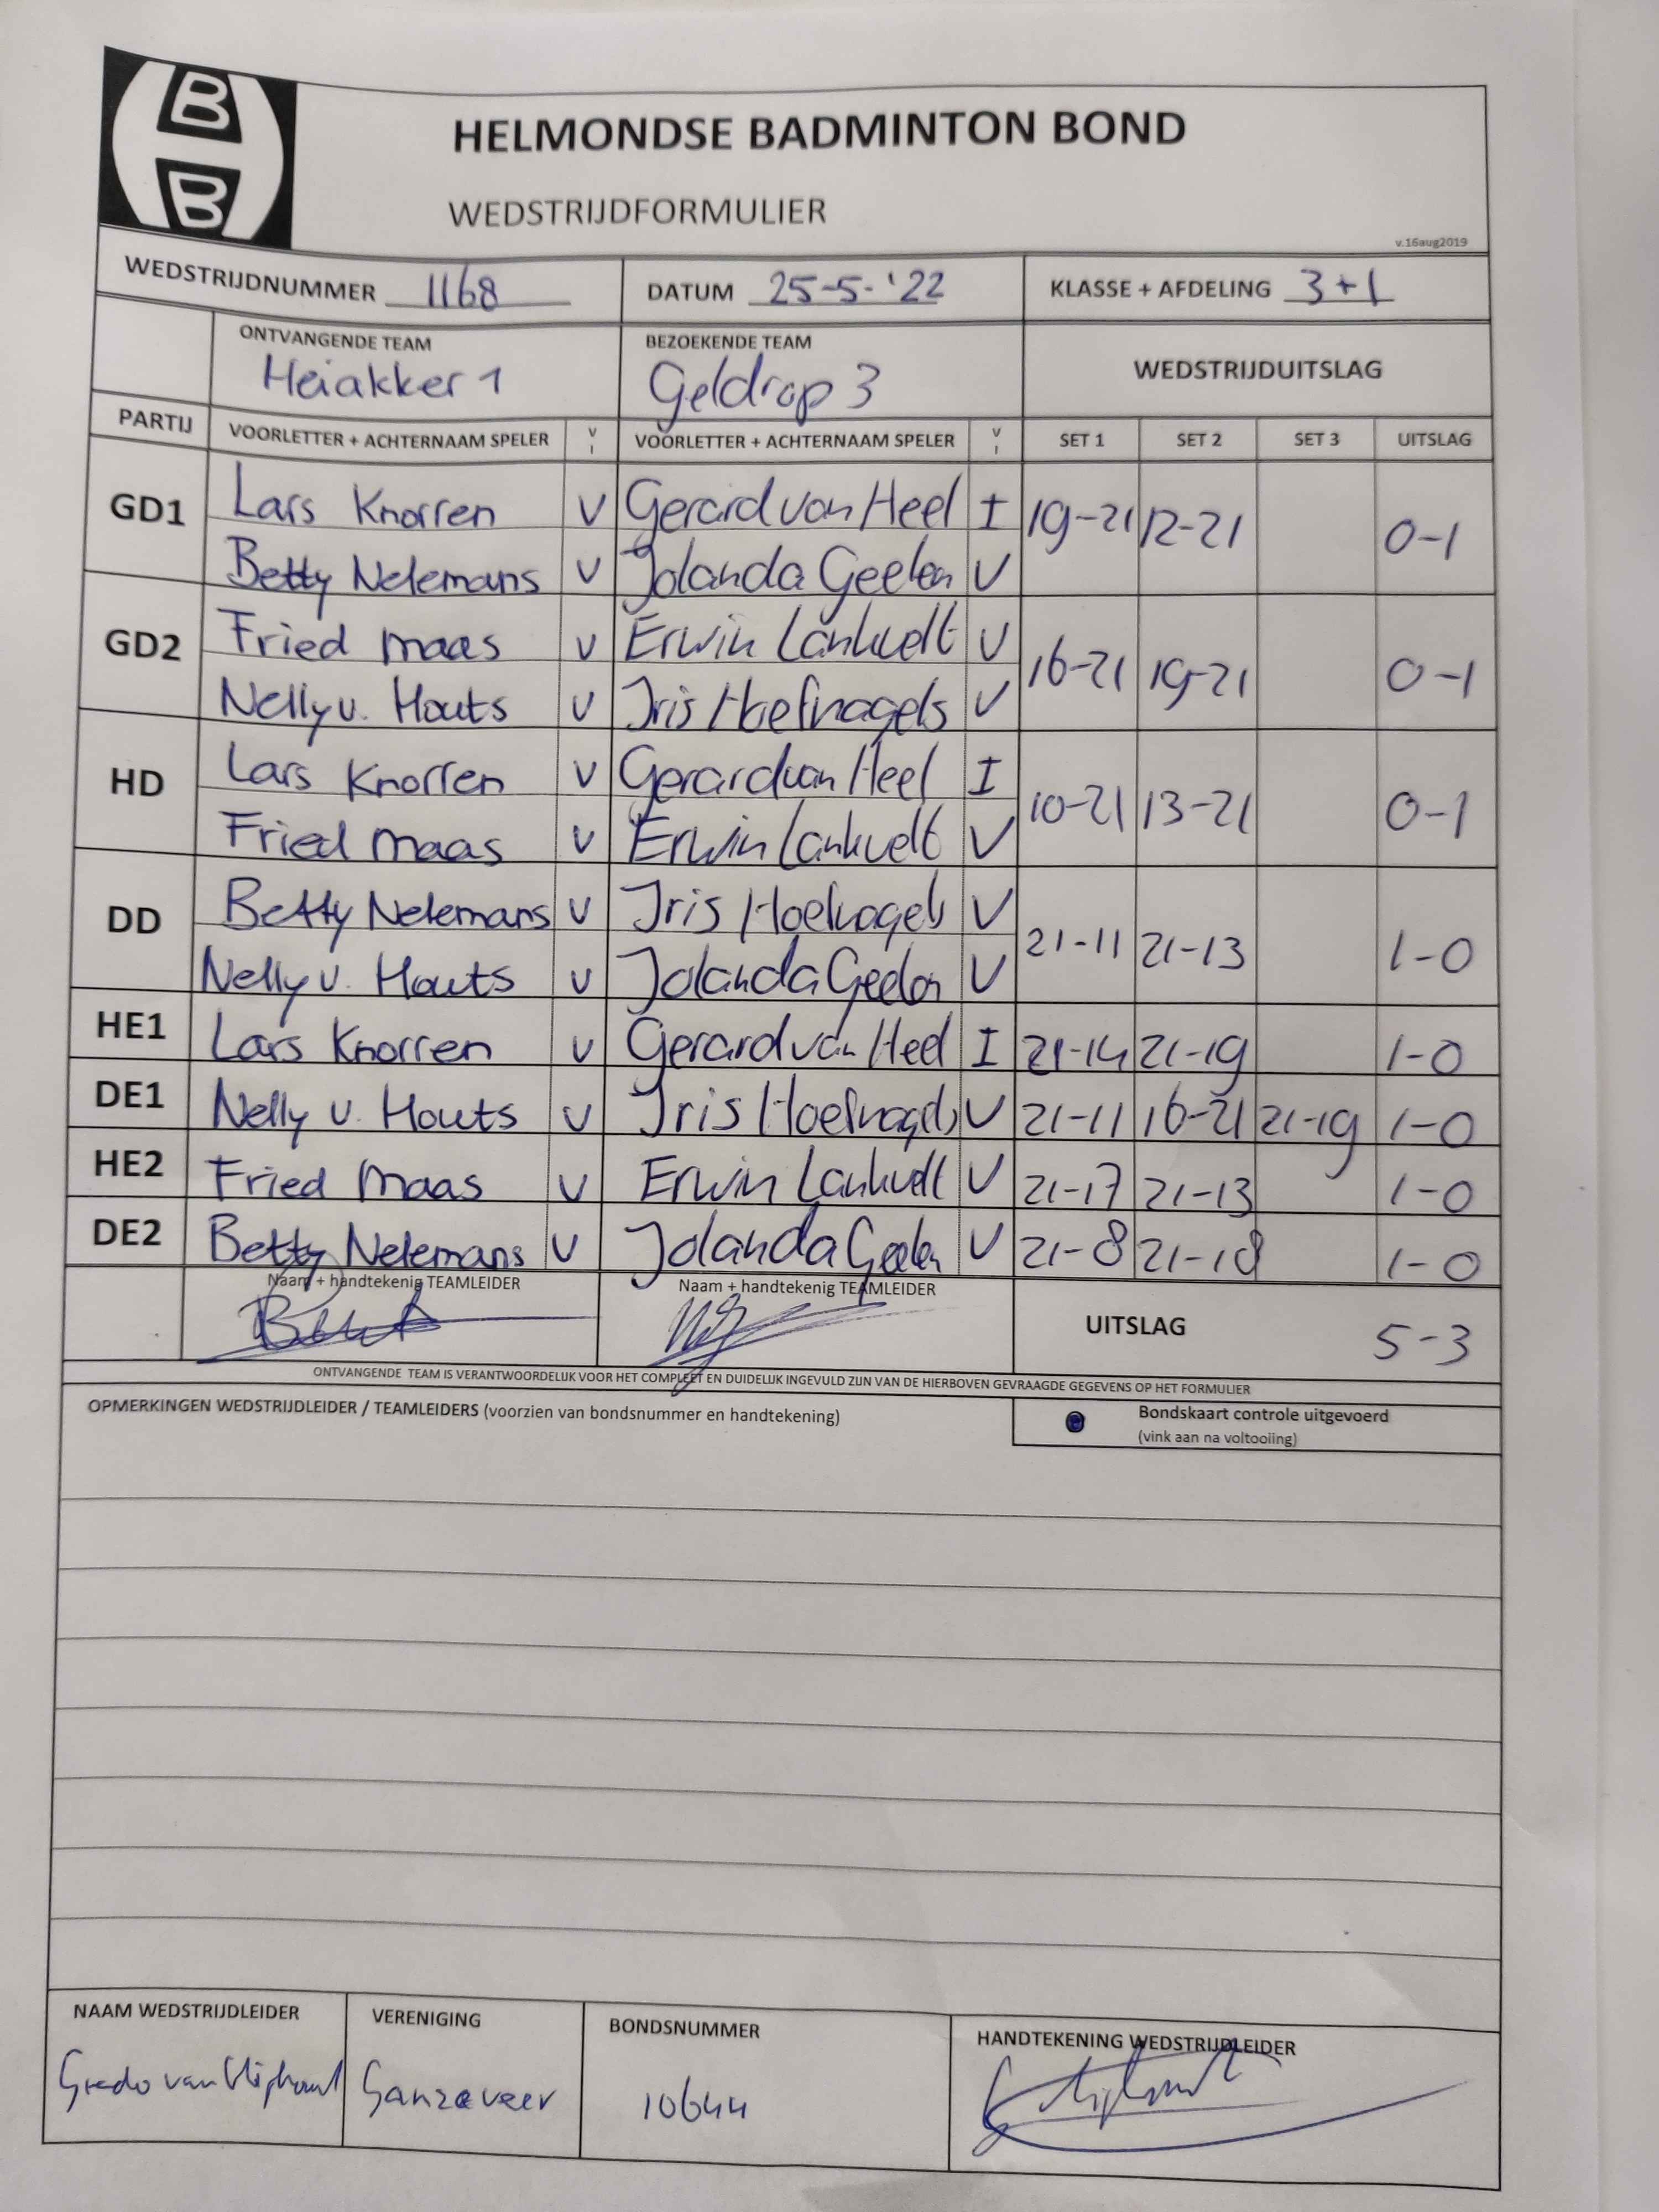 B
B
HELMONDSE BADMINTON BOND
WEDSTRIJDFORMULIER
v.16aug2019
WEDSTRIJDNUMMER 1168 DATUM 25-5-'22 KLASSE + AFDELING 3+1
ONTVANGENDE TEAM BEZOEKENDE TEAM
Heiakker 1 Geldrop 3 WEDSTRIJDUITSLAG
PARTIJ VOORLETTER + ACHTERNAAM SPELER V I VOORLETTER + ACHTERNAAM SPELER V I SET 1 SET 2 SET 3 UITSLAG
GD1 Lars Knorren V Gerard van Heel I 19-21 12-21 0-1
Betty Nelemans V Jolanda Geelen V
GD2 Fried Maas V Erwin Lankvelt V 16-21 19-21 0-1
Nelly v. Houts V Iris Hoefnagels V
HD Lars Knorren V Gerard van Heel I 10-21 13-21 0-1
Fried Maas V Erwin Lankvelt V
DD Betty Nelemans V Iris Hoefnagels V 21-11 21-13 1-0
Nelly v. Houts V Jolanda Geelen V
HE1 Lars Knorren V Gerard van Heel I 21-14 21-19 1-0
DE1 Nelly v. Houts V Iris Hoefnagels V 21-11 16-21 21-19 1-0
HE2 Fried Maas V Erwin Lankvelt V 21-17 21-13 1-0
DE2 Betty Nelemans V Jolanda Geelen V 21-8 21-18 1-0
Naam + handtekenig TEAMLEIDER Naam + handtekenig TEAMLEIDER
UITSLAG 5-3
ONTVANGENDE TEAM IS VERANTWOORDELIJK VOOR HET COMPLEET EN DUIDELIJK INGEVULD ZIJN VAN DE HIERBOVEN GEVRAAGDE GEGEVENS OP HET FORMULIER
OPMERKINGEN WEDSTRIJDLEIDER / TEAMLEIDERS (voorzien van bondsnummer en handtekening)
Bondskaart controle uitgevoerd
(vink aan na voltooiing)
NAAM WEDSTRIJDLEIDER VERENIGING BONDSNUMMER HANDTEKENING WEDSTRIJDLEIDER
van Ganzeveer 10644